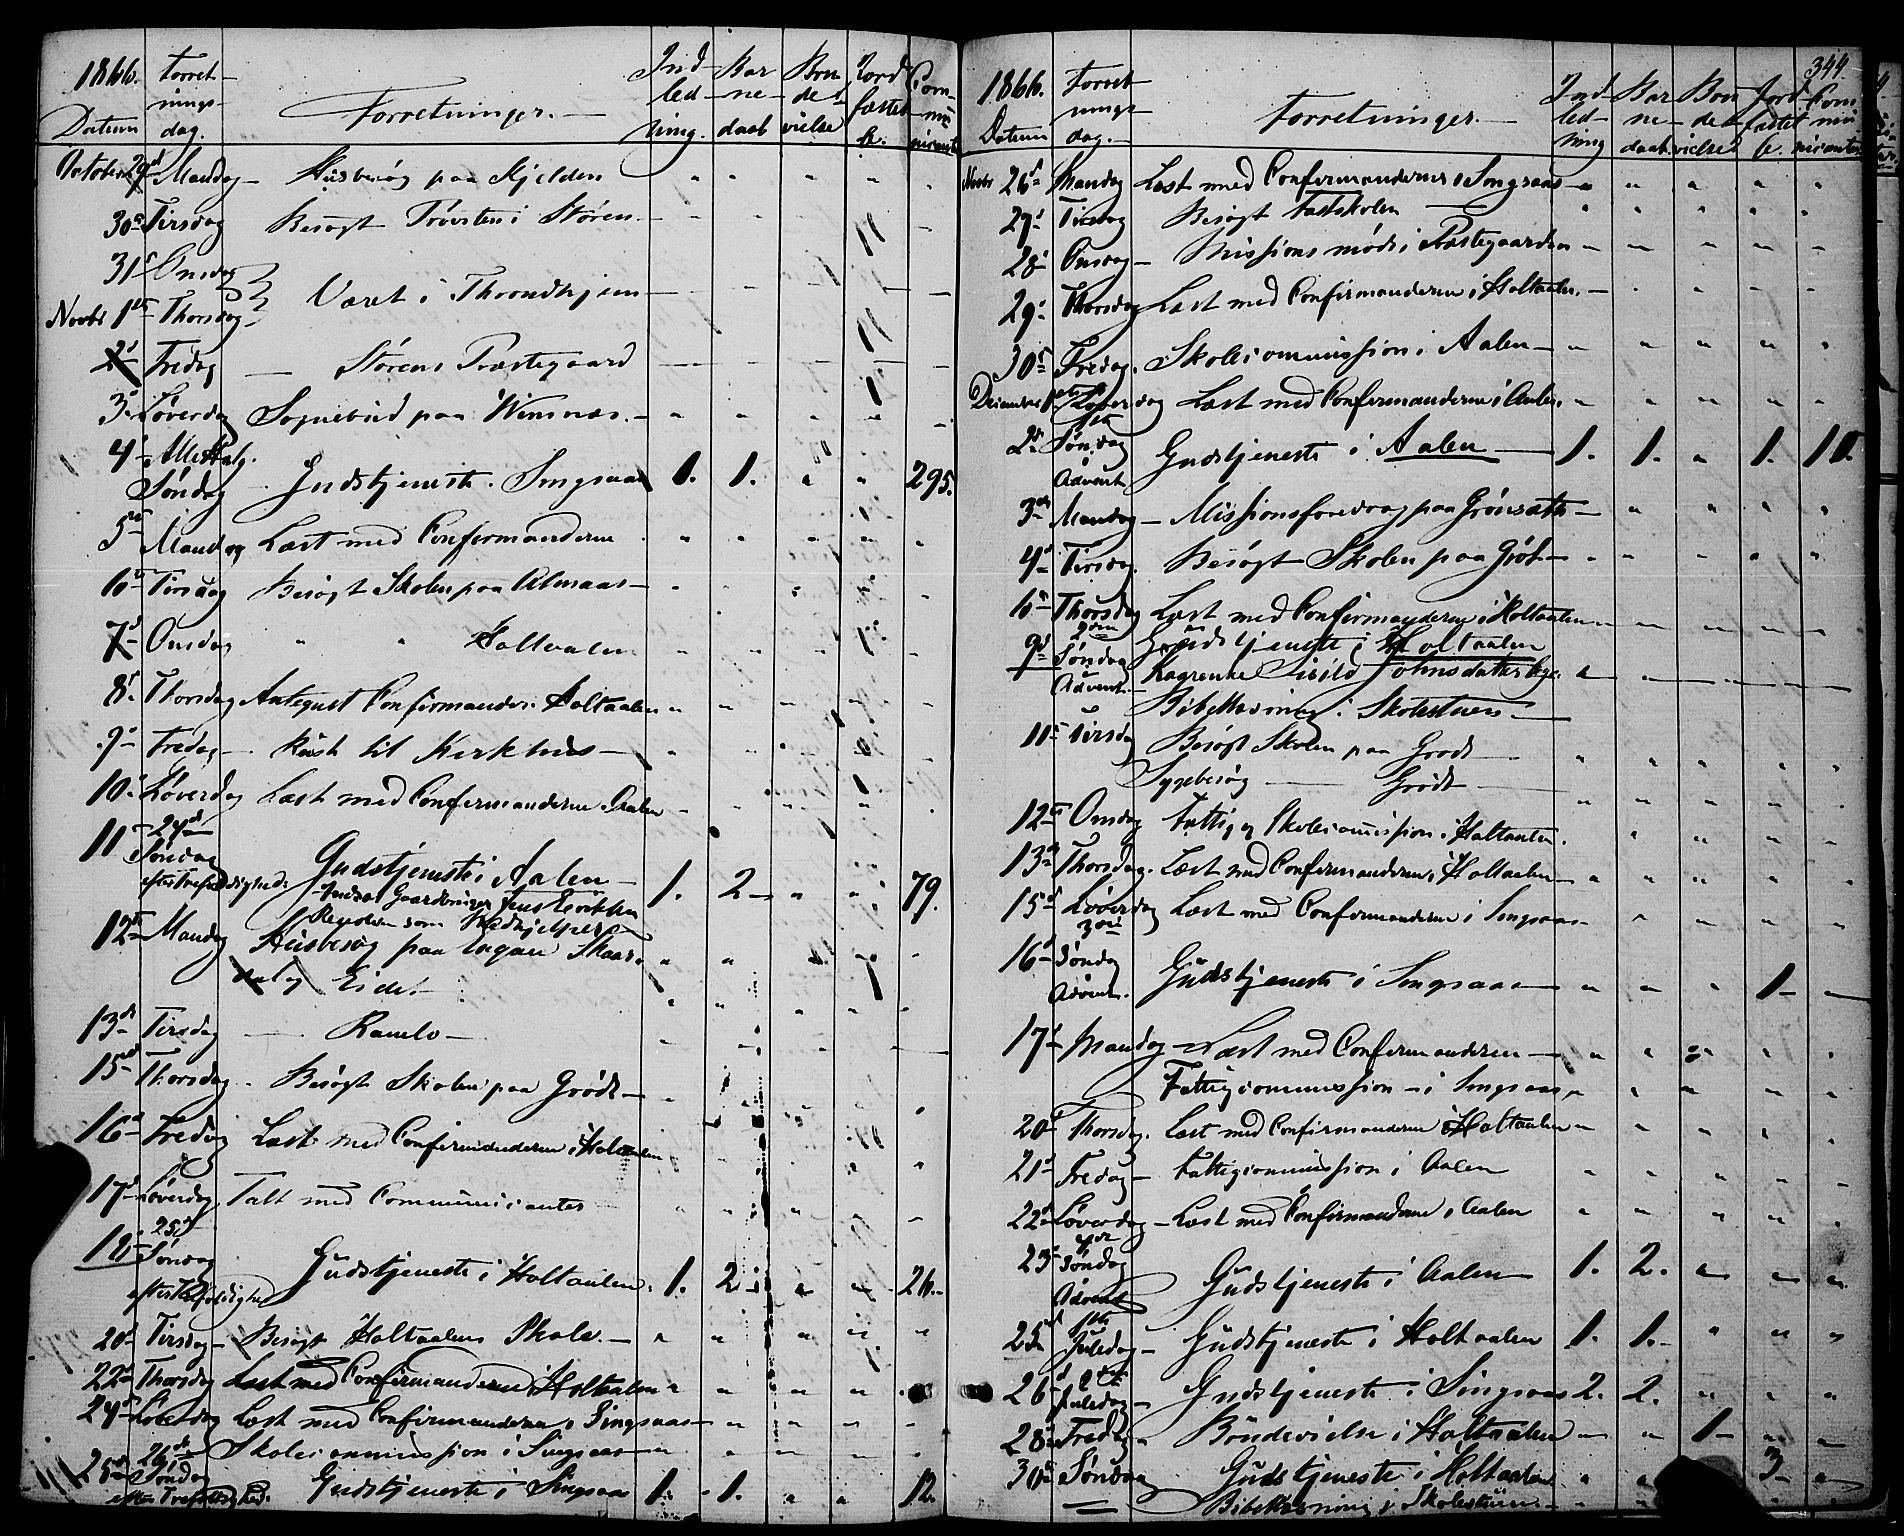 1866. Forret- Ind- Bar Bru Jord Com-
nings- Forretninger. led- ne- de- fæstel mu
Datum dag. ning. daab vielse se. nicanter
October 29d Mandag Husbesøg paa Kjelden
30d Tirsdag Besøgt i Støren.
31d Onsdag
Novbr 1ste Thorsdag Været i Throndhjem
2d Fredag Størens Præstegaard
3d Løverdag Sognebud paa Winsnæs.
4d AlleHelg.
Søndag Gudstjeneste. Singsaas 1. 1. 295.
5te Mandag Læst med Confirmanderne
6te Tirsdag Besøgt Skolen paa Almaas
7d Onsdag " " Holtaalen
8d Thorsdag Antegnet Confirmander i Holtaalen
9d Fredag Reist til Kirkhus
10d Løverdag Læst med Confirmanderne Aalen
11 24d
Søndag
efter Trefoldighed. Gudstjeneste i Aalen 1. 2 79.
Indsat Gaardbruger Jens Erikken
som Medhjelper
12te Mandag Husbesøg paa Engan Skaar
og Eidet
13d Tirsdag Ramlo
15d Thorsdag. Besøgt Skolen paa Grødt
16d Fredag Læst med Confirmanderne i Holtaalen
17d Løverdag Talt med Communicanter
18 25d
Søndag
efter Trefoldighed Gudstjeneste i Holtaalen. 1. 2. 26.
20d Tirsdag Besøgt Holtaalens Skole.
22d Thorsdag Læst med Confirmanderne i Holtaalen
24d Løverdag Læst med Confirmanderne i Singsaas
Skolecommission i Singsaas
25d 26d
Søndag
efter Trefoldighed. Gudstjeneste i Singsaas 1. 1. 12.
344
1866. Forret Ind- Bar Bru Jord Com
nings Forretninger. led- ne- de- fæstel mu
Datum dag. ning daab vielse se. nicanter
Novbr 26d Mandag Læst med Confirmanderne i Singsaas
27d Tirsdag Besøgt Fastskolen
28d Onsdag Missions møde i Præstegaarden
29d Thorsdag Læst med Confirmanderne i Holtaalen.
30d Fredag. Skolecommission i Aalen
December 1ste Løverdag Læst med Confirmanderne i Aalen.
2d 1ste
Søndag
Advent Gudstjeneste i Aalen 1. 1. 1. 10.
3d Mandag Missionsforedrag paa Grønsæth
4d Tirsdag. Besøgt Skolen paa Grøt
6d Thorsdag Læst med Confirmanderne i Holtaalen
9d 2den
Søndag
Advent. Gudstjeneste i Holtaalen
Sisild Johnsdatter
Bibellæsning i Skolestuen
11d Tirsdag Besøgt Skolen paa Grødt
Sygebesøg Grødt
12te Onsdag Fattig og Skolecommission i Holtaalen.
13d Thorsdag. Læst med Confirmanderne i Holtaalen
15d Løverdag Læst med Confirmanderne i Singsaas
16d 3die
Søndag
Advent. Gudstjeneste i Singsaas 1
17d Mandag Læst med Confirmanderne
Fattigcommission i Singsaas
20d Thorsdag. Læst med Confirmanderne i Holtaalen
21d Fredag Fattigcommission i Aalen
22d Løverdag Læst med Confirmanderne i Aalen
23d 4de
Søndag
Advent Gudstjeneste i Aalen 1. 2.
25d 1ste
Juledag Gudstjeneste i Holtaalen 1. 1.
26d 2d
Juledag Gudstjeneste i Singsaas 2. 2.
28d Fredag Brudevielse i Holtaalen 1
30d Søndag Gudstjeneste i Holtaalen 3
Bibellæsning i Skolestuen.